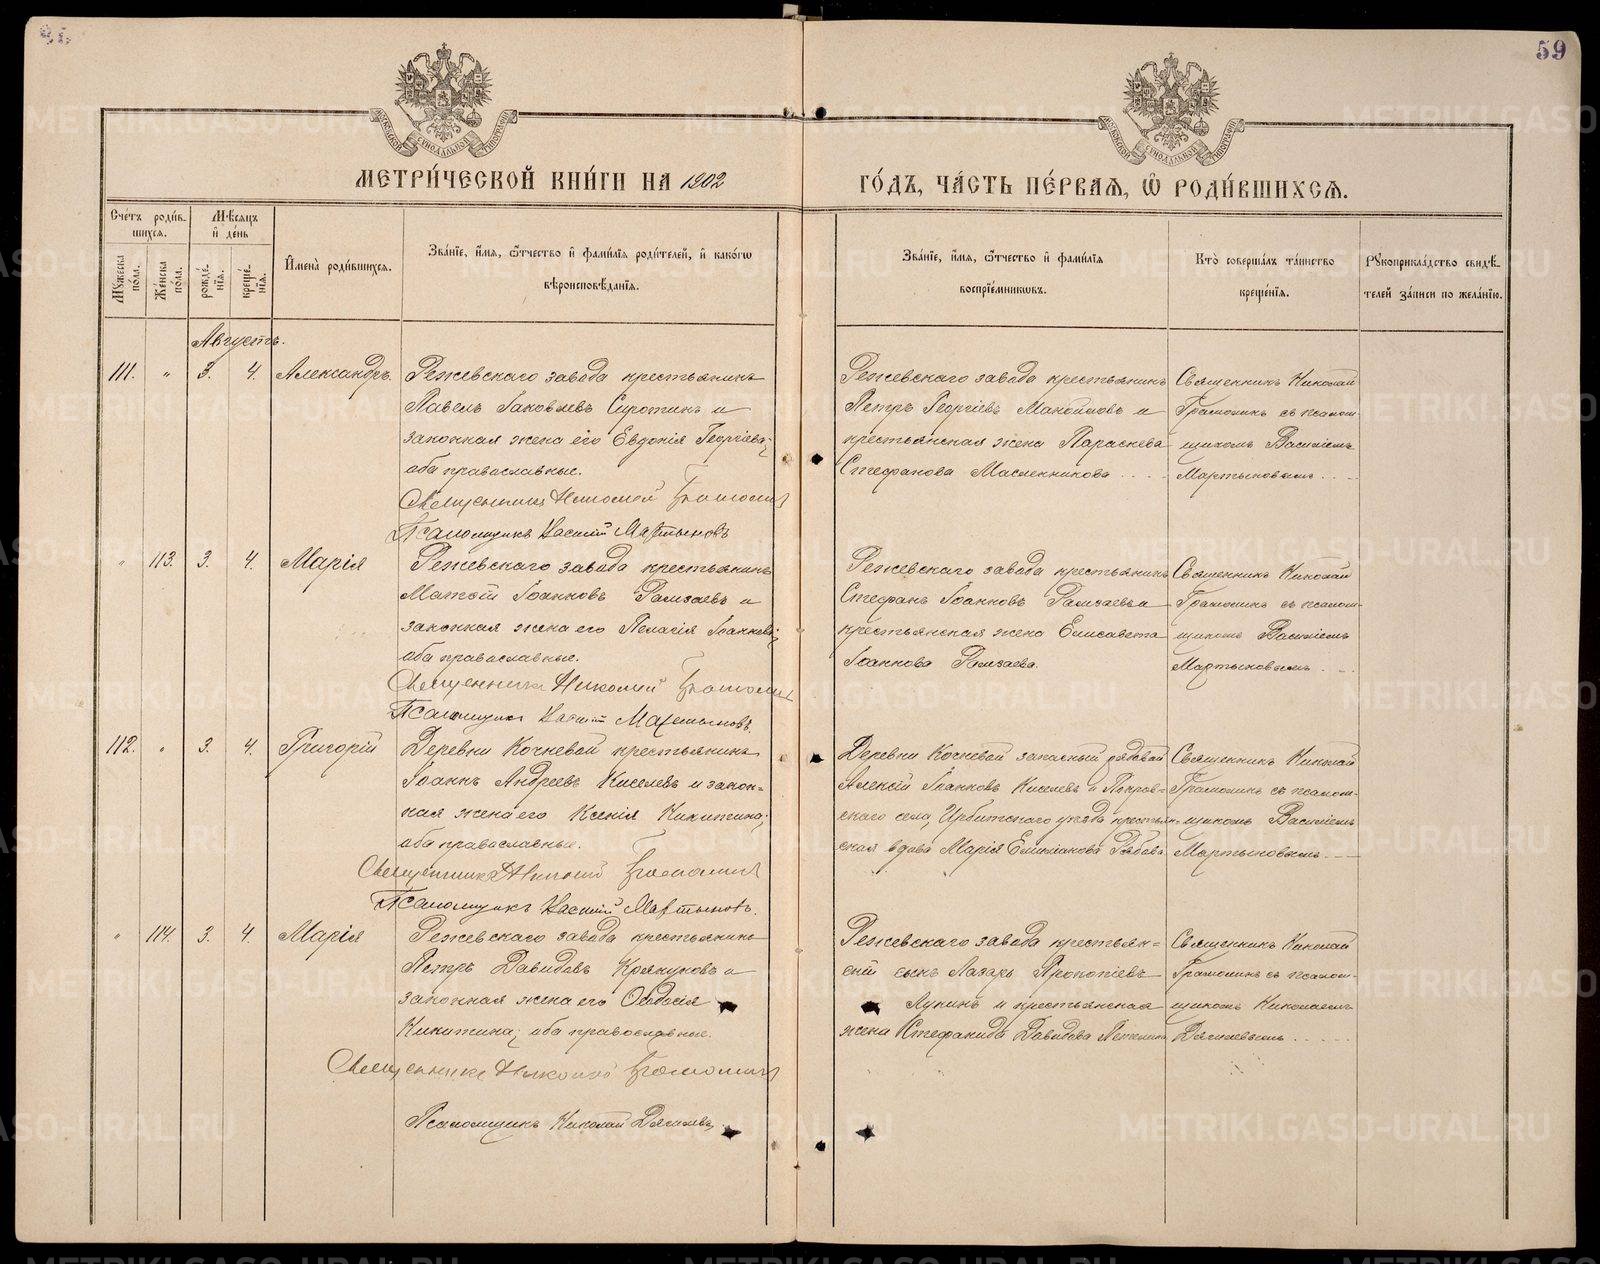 59
МЕТРИ́ЧЕСКОЙ КНИ́ГИ НА 1902
ГО́ДЪ, ЧА́СТЬ ПЕ́РВАЯ, Ѽ РОДИ́ВШИХСЯ.
Счетъ роди́вшихся.
Мѣсяцъ и́ де́нь
Мꙋжеска по́ла.
Же́нска по́ла.
рожде́нїя.
креще́нїя.
И́мена̀ роди́вшихся.
Зва́нїе, и́мя, ѻ́тчество и́ фами́лїя роди́телей, и́ како́гѡ
вѣроисповѣ́данїя.
Зва́нїе, и́мя, ѻ́тчество и́ фами́лїя
воспрїе́мникѡвъ.
Кто̀ соверша́лъ та́инство
креще́нїя.
Рꙋкоприкла́дство свидѣ́-
телей за́писи по жела́нїю.
Августъ.
111. " 3. 4. Александръ.
Режевскаго завода крестьянинъ
Павелъ Іаковлевъ Сиротинъ и
законная жена его Евдокія Георгіева;
оба православные.
Священникъ Николай
Псаломщикъ Василій Мартыновъ
Режевскаго завода крестьянинъ
Петръ Георгіевъ и
крестьянская жена Параскева
Стефанова Масленникова
Священникъ Николай
Грамолинъ съ псалом-
щикомъ Василіемъ
Мартыновымъ
" 113. 3. 4. Марія
Режевскаго завода крестьянинъ
Матѳій Іоанновъ и
законная жена его Пелагія Іоаннова;
оба православные.
Священникъ Николай
Псаломщикъ Василій Мартыновъ.
Режевскаго завода крестьянинъ
Стефанъ Іоанновъ и
крестьянская жена Елисавета
Іоаннова
Священникъ Николай
Грамолинъ съ псалом-
щикомъ Василіемъ
Мартыновымъ
112. " 3. 4. Григорій
Деревни Кочневой крестьянинъ
Іоаннъ Андреевъ Киселевъ и закон-
ная жена его Ксенія Никитина;
оба православные.
Священникъ Николай
Псаломщикъ Василій Мартыновъ.
Деревни Кочневой запасный рядовой
Алексій Іоанновъ Киселевъ и Покров-
скаго села, Ирбитскаго уѣзда крестьян-
ская вдова Марія Емиліанова
Священникъ Николай
Грамолинъ съ псалом-
щикомъ Василіемъ
Мартыновымъ
" 114. 3. 4. Марія
Режевскаго завода крестьянинъ
Петръ Давидовъ и
законная жена его Ѳеодосія
Никитина; оба православные.
Священникъ Николай
Псаломщикъ Николай Дягилевъ
Режевскаго завода крестьян-
скій сынъ Лазарь Прокопіевъ
Лукинъ и крестьянская
жена Стефанида Давидова
Священникъ Николай
Грамолинъ съ псалом-
щикомъ Николаемъ
Дягилевымъ
METRIKI.GASO-URAL.RU